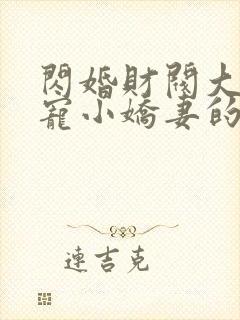 閃婚財閥大
寵小嬌妻的
連吉克